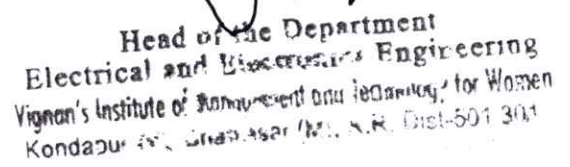 Head of the Department
Electrical and Electronics Engineering
Vignan's Institute of Management and Technology for Women
Kondapur Dist-501 301